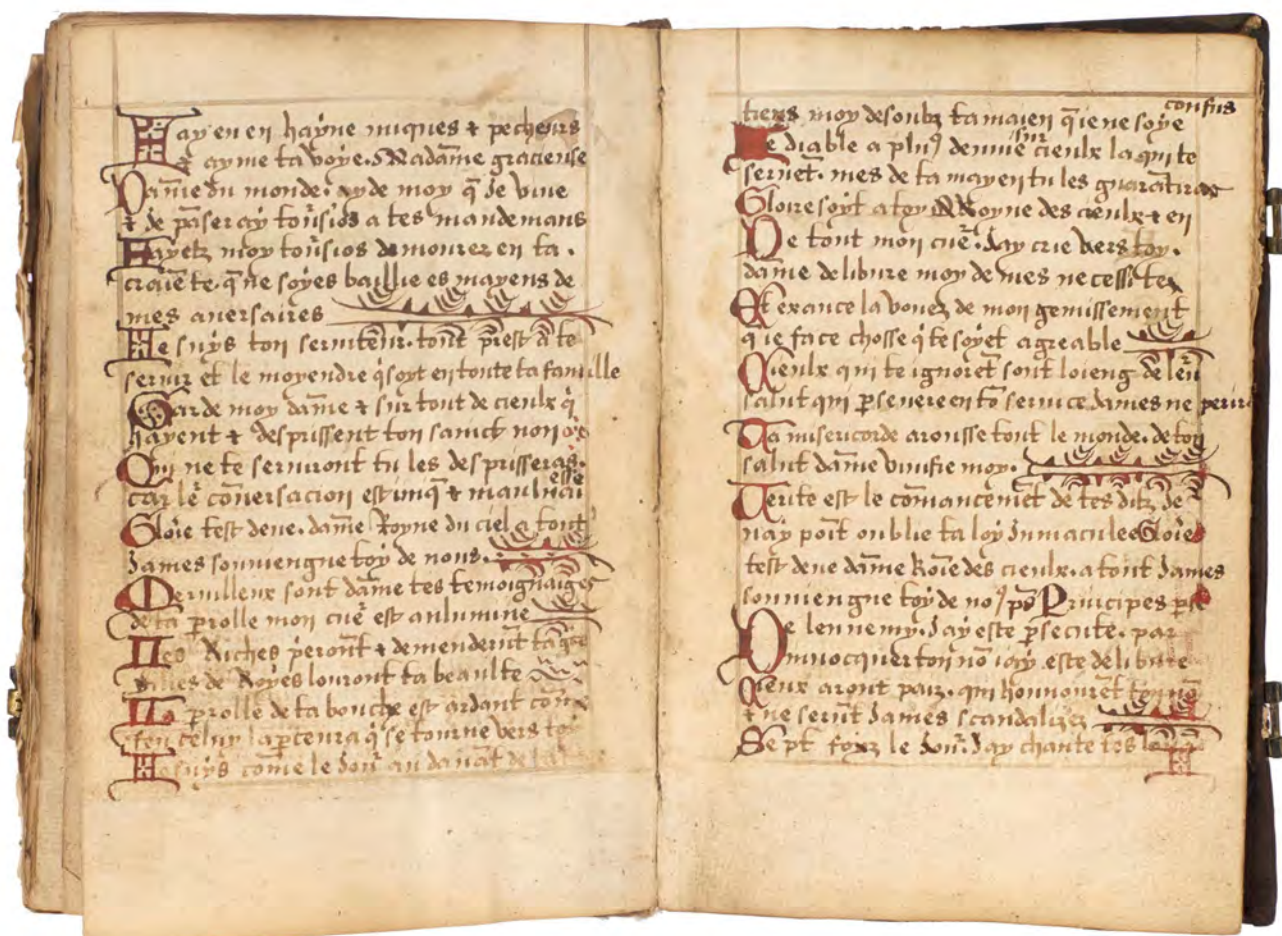 Jay en en hayne iniques & pecheurs
& ayme ta voye. O Madāme graciense
Dāme du monde. ay de moy q̄ Je vive
& de pāseray toūsios a tes mandemans
Fayetz moy toūsios demourez en ta.
craiēte. q̄ ne soyes baillie es mayens de
mes aversaires
Je suys ton seruitēur. toūt p̄rest A te
seruir et le moyendre q̄ soyt en toute ta famille
Garde moy dāme & sur tout de cieulx q̄
hayent & desprissent ton sainct non
Qui ne te seruiront tu les desprisseras.
car lē cōnersacion est iniq̄ & maulnaiesse
Gloīe test dene. dāme Royne du ciel a tont
James sonniengne toy de nons.
Meruilleux sont dāme tes temoignaiges
de ta p̄rolle mon cuē est anlumine
Les Riches perōnt & demenderūt ta
filles de Royes louront ta beaulte
La p̄rolle de ta bouche est ardant cōme
feu celuy la p̄tenra q̄ se tourne vers toy
Je suys cōme le Joū au dauāt de la
tiens moy desoubz ta maien q̄ ie ne soye confus
Le diable a plus denuie sur cieulx la qui te
seruēt. mes de ta mayen tu les guarātiras
Gloire soyt a toy Royne des cieulx & en
De tout mon cuē. Jay crie vers toy.
dāme delibure moy de mes necessites
Et exance la vouez de mon gemissement
q ie face chosse q̄ te soyet agreable
Cieulx qui te ignorēt sont loieng de leū
salut qui p̄seuere en tō seruice James ne perira
Ta misericorde arousse tout le monde. de ton
salut dāme viuifie moy.
Verite est le cōmancemēt de tes ditz Je
nay poīt onblie ta loy Jnmaculee Gloīe
test dene dāme Roīe des cieulx. a tont James
sonniengne toy de no⁹ p̄s Principes p̄se
De lennemy. Jay este p̄secute. par
Jnuocquer ton nō iay este delibure
Cieux aront paiz. qui honnourēt ton nō
& ne serūt James scandalizez
Sept foyz le Joū. Jay chante tes